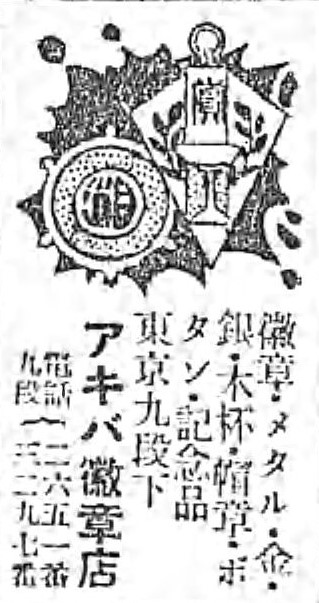 賞
徽章・メタル・金・
銀・木杯・帽章・ボ
タン・記念品
東京九段下
アキバ徽章店
電話九段{二六五一番
三二九七番